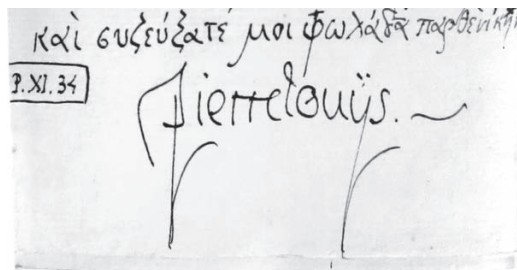 καὶ συζεύξατέ μοι φωλάδα παρθενικὴν
P.XI.34
Pierre Louÿs.